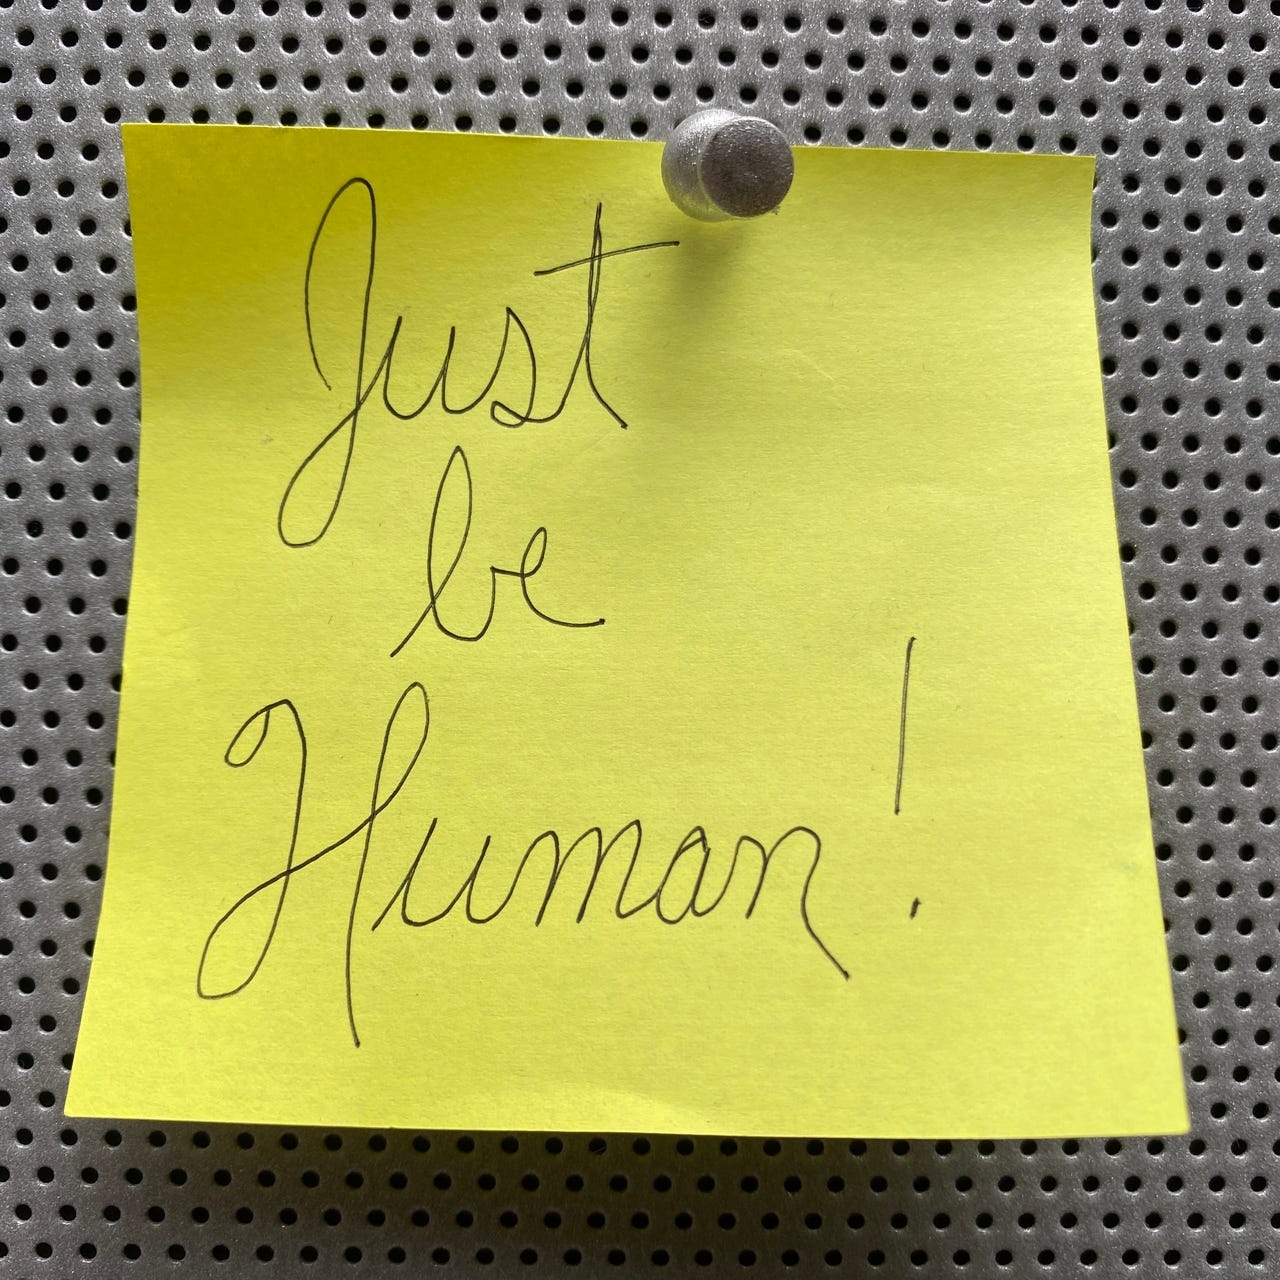 Just
be
Human!